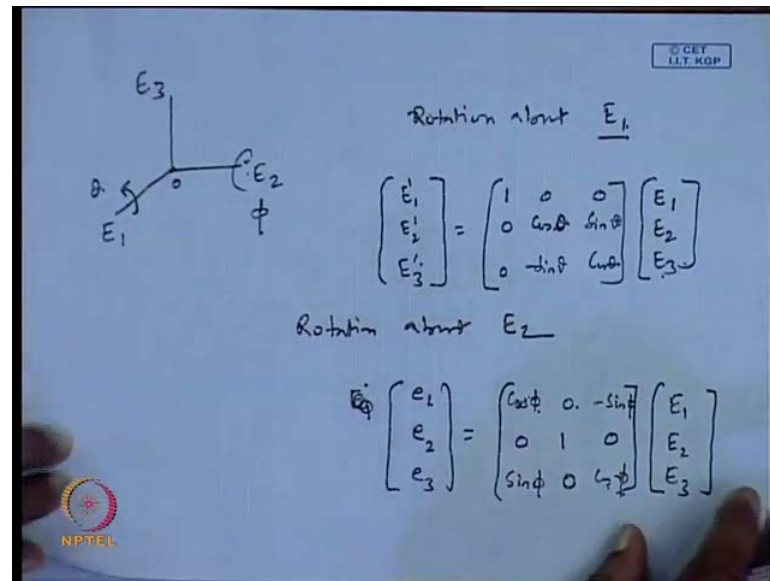 © CET
I.I.T. KGP
E3
Rotation about E1.
θ.
0
E2
E1
φ
[E1' E2' E3'] = [1 0 0
0 Cosθ Sinθ
0 -Sinθ Cosθ] [E1 E2 E3]
Rotation about E2
[e1 e2 e3] = [Cosφ 0. -Sinφ
0 1 0
Sinφ 0 Cφ] [E1 E2 E3]
NPTEL